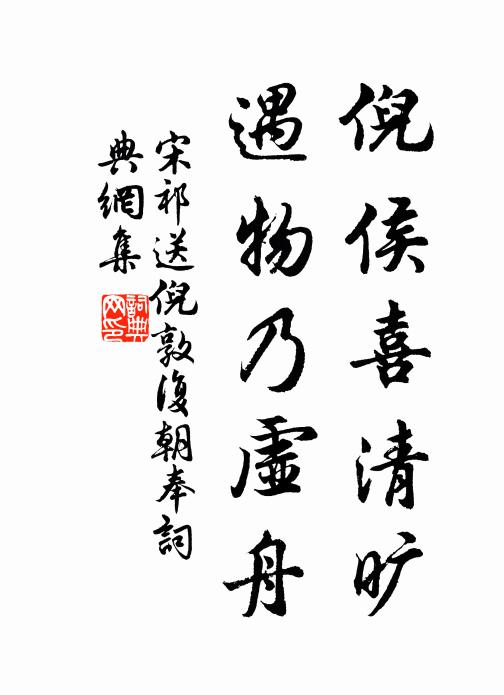 倪侯喜清旷
遇物乃虚舟
宋祁送倪敦復朝奉詞
典網集
詞典
网印